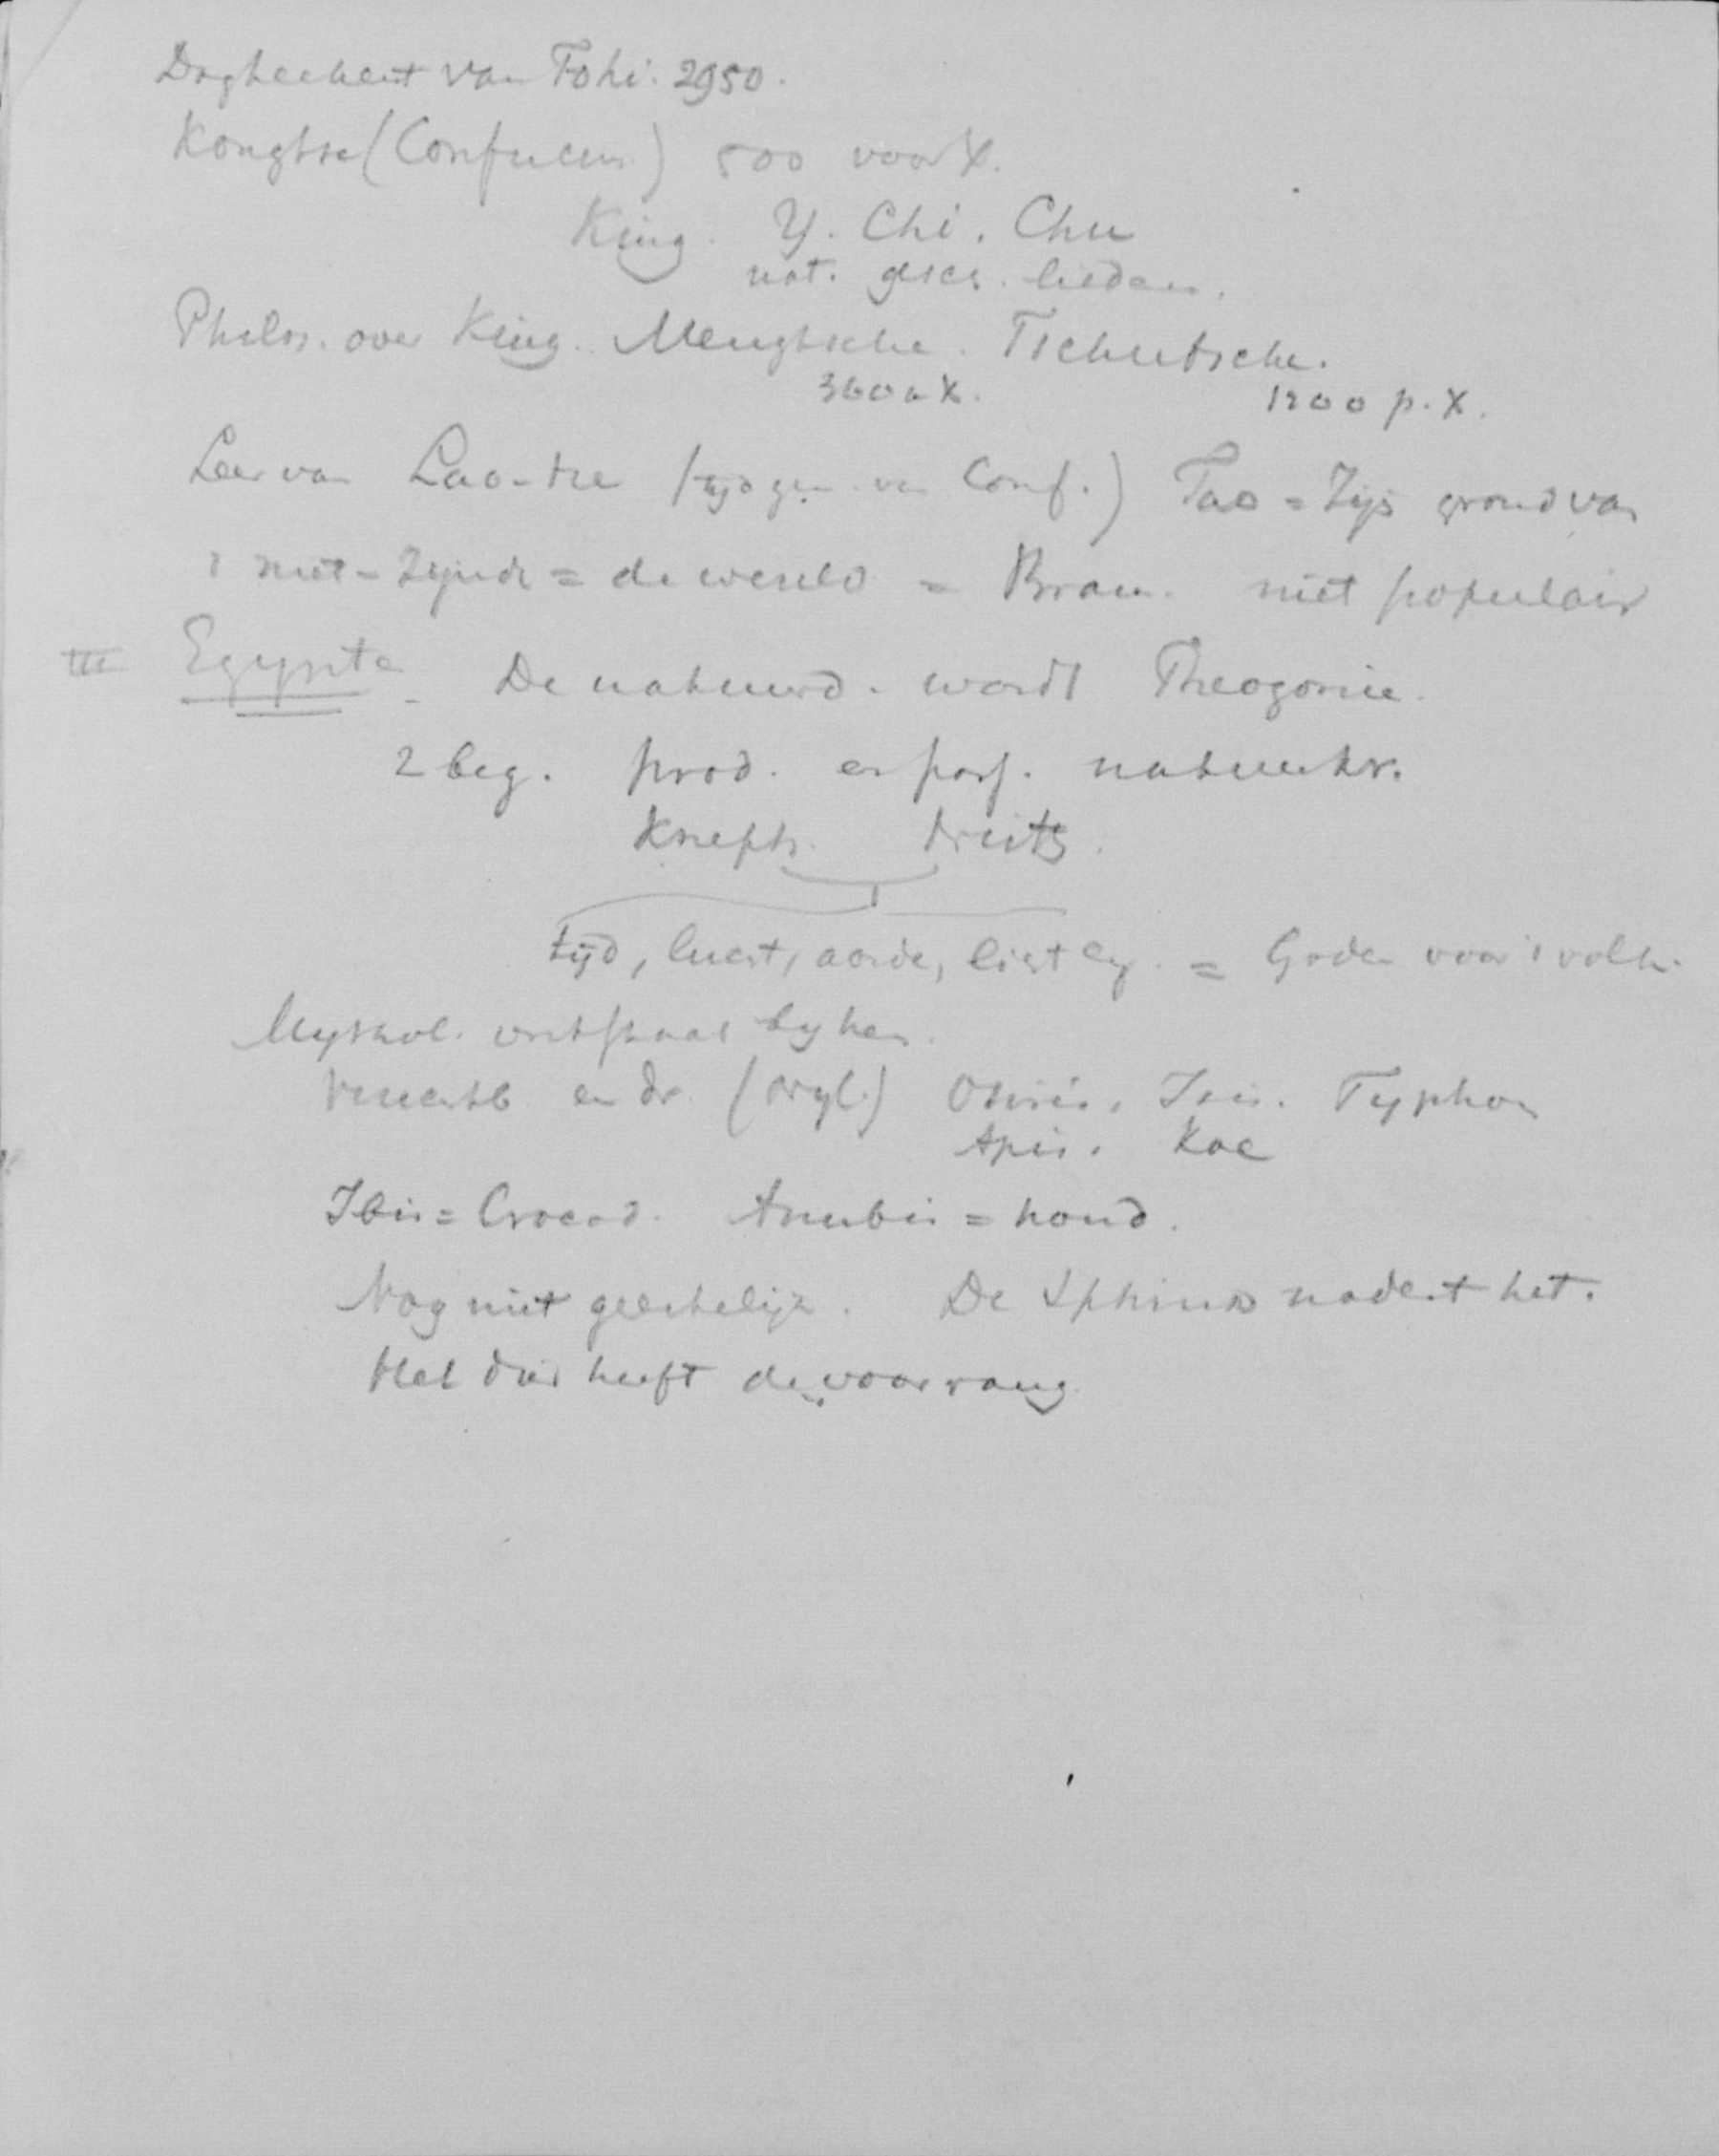 van Fohi. 2950.
Kongtse (Confucius) 500 voor X.
King. Y. Chi. Chu
nat. gesch. liederen.
Philos. over King. Mengtsche. Tschutsche.
360 a X. 1200 p. X.
Leer van Lao-tse (tijdgen. van Conf.) Tao = Zijn grond van
't niet-zijnde = de wereld = Bram. niet populair
III Egypte. De natuurd. wordt Theogonie.
2 beg. prod. en pass. natuurkr.
Kneph. Neith.
tijd, lucht, aarde, licht = Goden voor 't volk.
Mythol. ontstaat bij hen.
en dr. (Nijl) Osiris, Isis. Typhon
Apis. Koe
Ibis = Crocod. Anubis = hond.
Nog niet De Sphinx nadert het.
Het dier heeft de voorrang